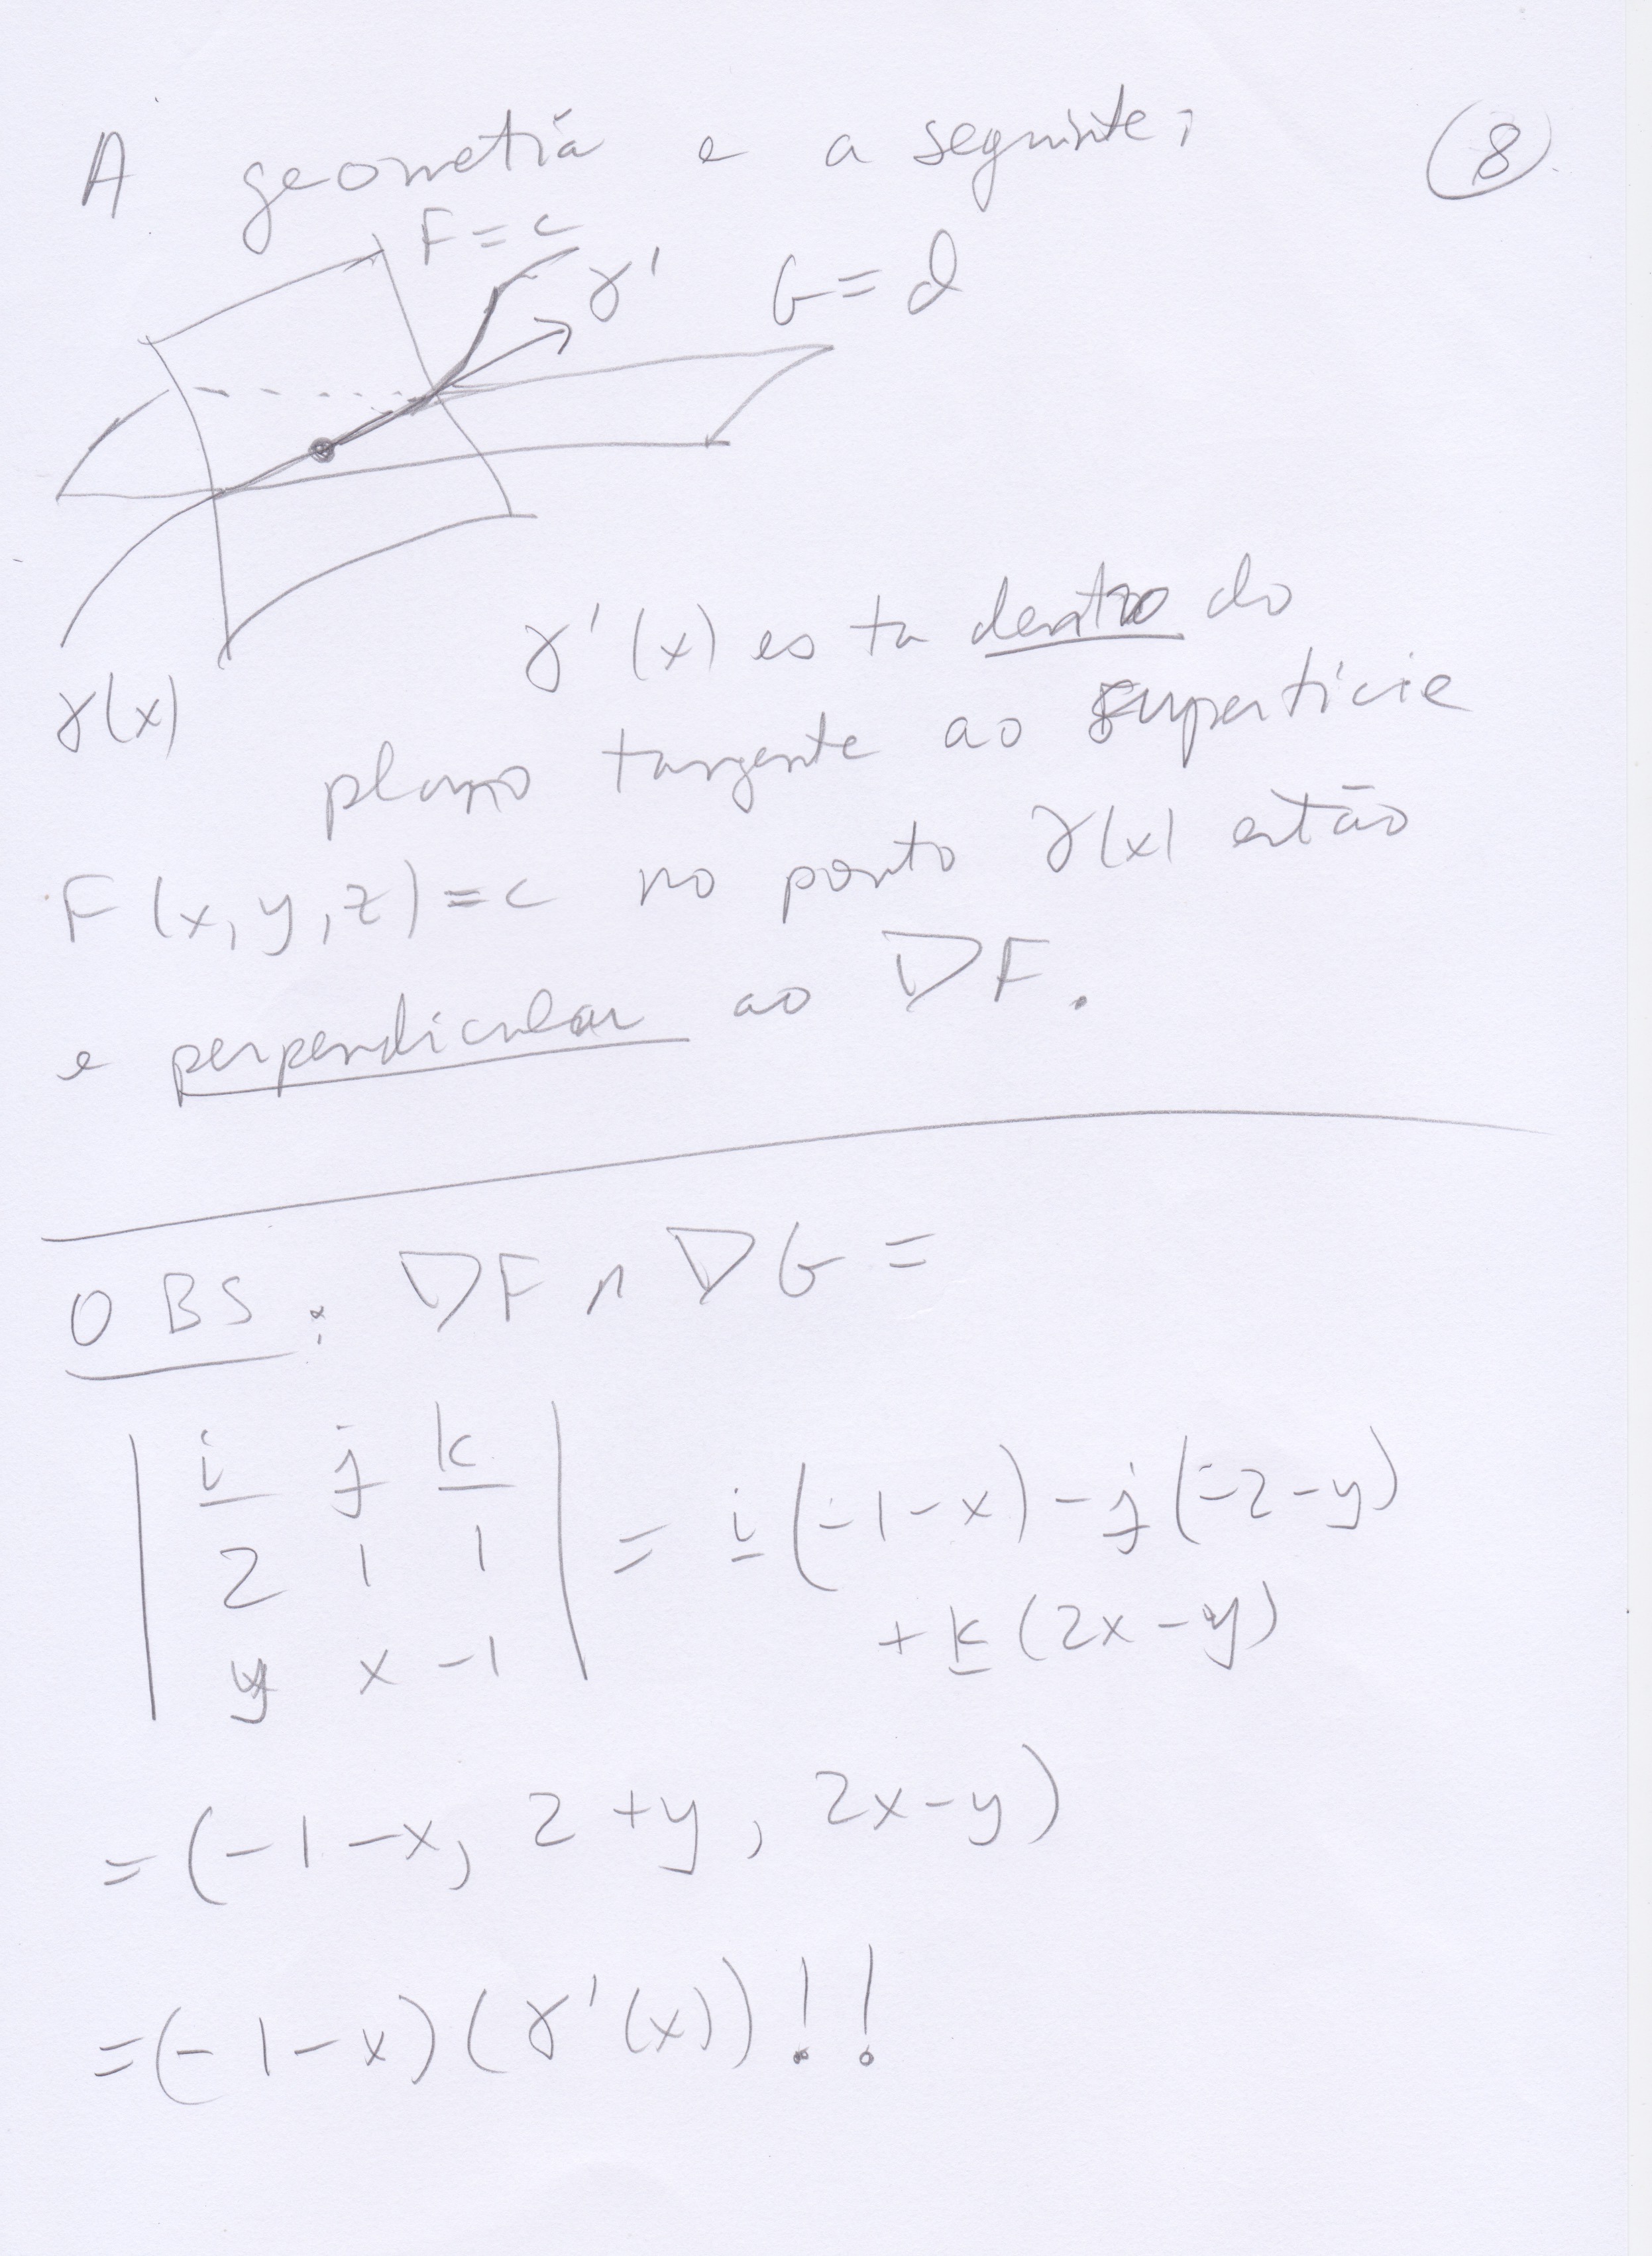 A geometria e a seguinte; (8)
F = c
γ' G = d
γ'(x) esta dentro do
γ(x)
plano tangente ao superficie
F(x,y,z) = c no ponto γ(x) então
e perpendicular ao ∇F.
OBS: ∇F ∧ ∇G =
| i j k |
| 2 1 1 | = i(-1-x) - j(-2-y)
+ k(2x-y)
| y x -1 |
= (-1-x, 2+y, 2x-y)
= (-1-x)(γ'(x))!!